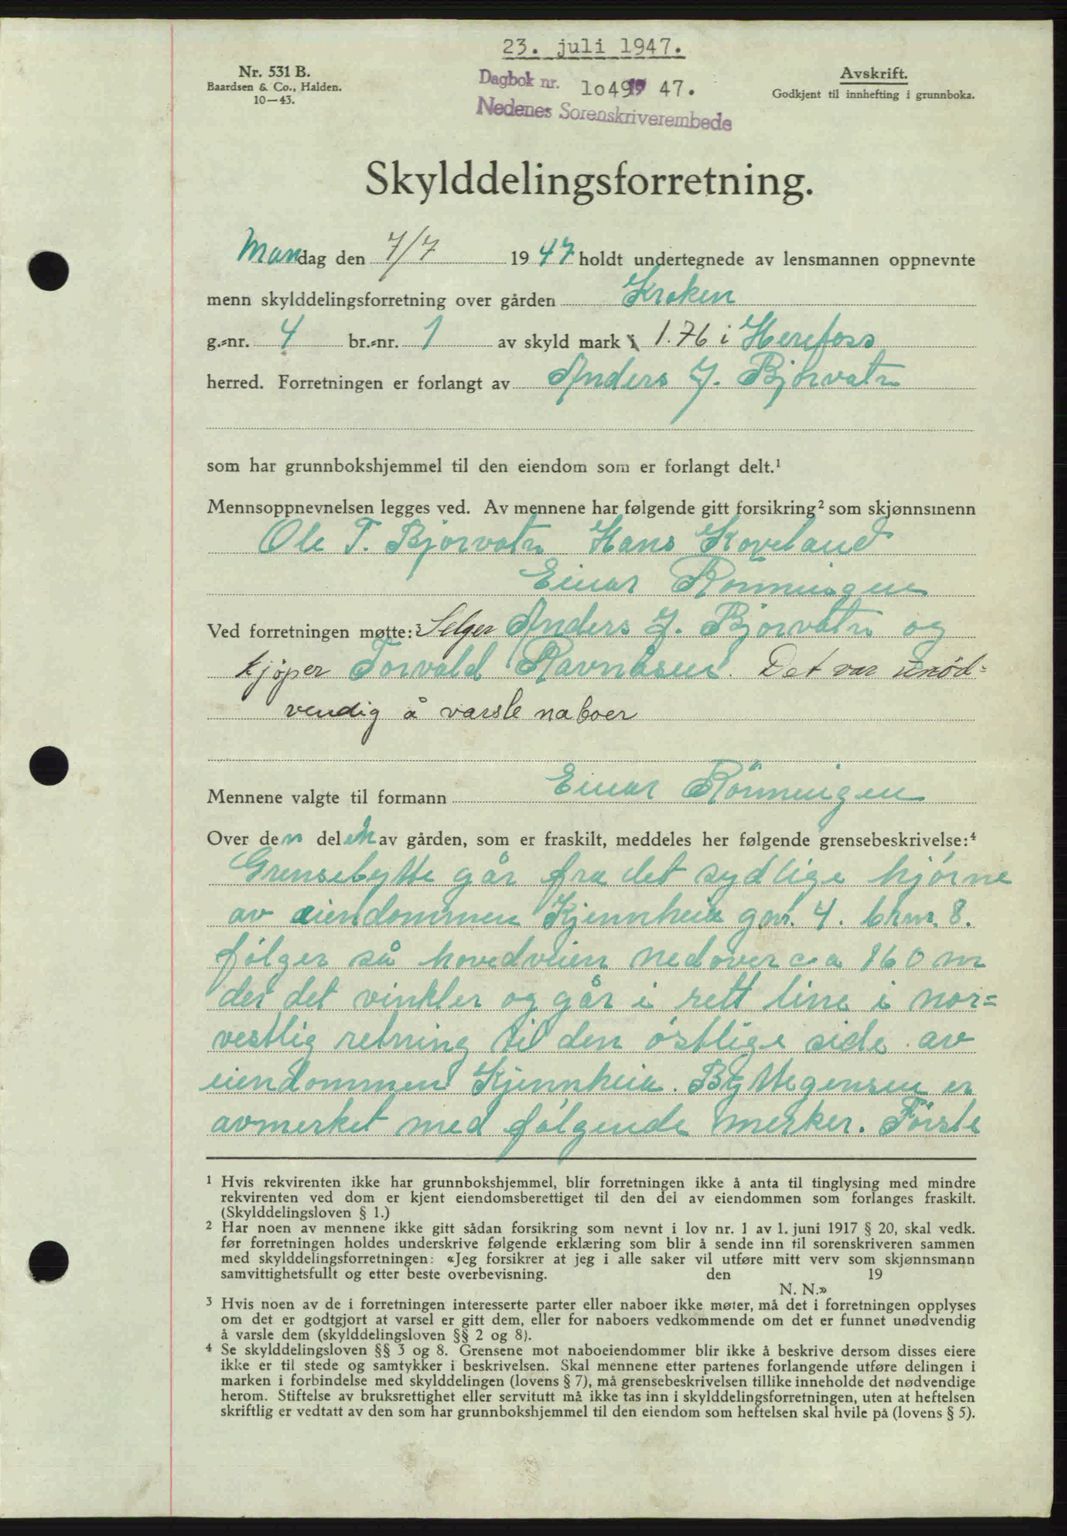 23. juli 1947.
Nr. 531 B.
Baardsen & Co., Halden.
10—43.
Dagbok nr. 1049 47.
Nedenes Sorenskriverembede
Avskrift.
Godkjent til innhefting i grunnboka.
Skylddelingsforretning.
Mandag den 7/7 1947 holdt undertegnede av lensmannen oppnevnte
menn skylddelingsforretning over gården Kroken
g.-nr. 4 br.-nr. 1 av skyld mark 1.76 i Herefoss
herred. Forretningen er forlangt av Anders J. Bjorvatn
som har grunnbokshjemmel til den eiendom som er forlangt delt.¹
Mennsoppnevnelsen legges ved. Av mennene har følgende gitt forsikring² som skjønnsmenn
Ole T. Bjorvatn Hans Koveland
Einar Rönningen
Ved forretningen møtte:³ Selger Anders J. Bjorvatn og
kjøper Torvald Ravnåsen. Det var unød-
vendig å varsle naboer
Mennene valgte til formann Einar Rönningen
Over den delen av gården, som er fraskilt, meddeles her følgende grensebeskrivelse:⁴
Grensebytte går fra det sydlige hjórne
av eiendommen Kjennheia gnr. 4. brnr. 8.
fólger så hovedveien nedover ca 160 m
der det vinkler og går i rett line i nor=
vestlig retning til den óstlige side av
eiendommen Kjennheia. Byttegensen er
avmerket med fólgende merker. Fórste
¹ Hvis rekvirenten ikke har grunnbokshjemmel, blir forretningen ikke å anta til tinglysing med mindre
rekvirenten ved dom er kjent eiendomsberettiget til den del av eiendommen som forlanges fraskilt.
(Skylddelingsloven § 1.)
² Har noen av mennene ikke gitt sådan forsikring som nevnt i lov nr. 1 av 1. juni 1917 § 20, skal vedk.
før forretningen holdes underskrive følgende erklæring som blir å sende inn til sorenskriveren sammen
med skylddelingsforretningen: «Jeg forsikrer at jeg i alle saker vil utføre mitt verv som skjønnsmann
samvittighetsfullt og etter beste overbevisning. den 19
N. N.»
³ Hvis noen av de i forretningen interesserte parter eller naboer ikke møter, må det i forretningen opplyses
om det er godtgjort at varsel er gitt dem, eller for naboers vedkommende om det er funnet unødvendig
å varsle dem (skylddelingsloven §§ 2 og 8).
⁴ Se skylddelingsloven §§ 3 og 8. Grensene mot naboeiendommer blir ikke å beskrive dersom disses eiere
ikke er til stede og samtykker i beskrivelsen. Skal mennene etter partenes forlangende utføre delingen i
marken i forbindelse med skylddelingen (lovens § 7), må grensebeskrivelsen tillike inneholde det nødvendige
herom. Stiftelse av bruksrettighet eller servitutt må ikke tas inn i skylddelingsforretningen, uten at heftelsen
skriftlig er vedtatt av den som har grunnbokshjemmel til den eiendom som heftelsen skal hvile på (lovens § 5).